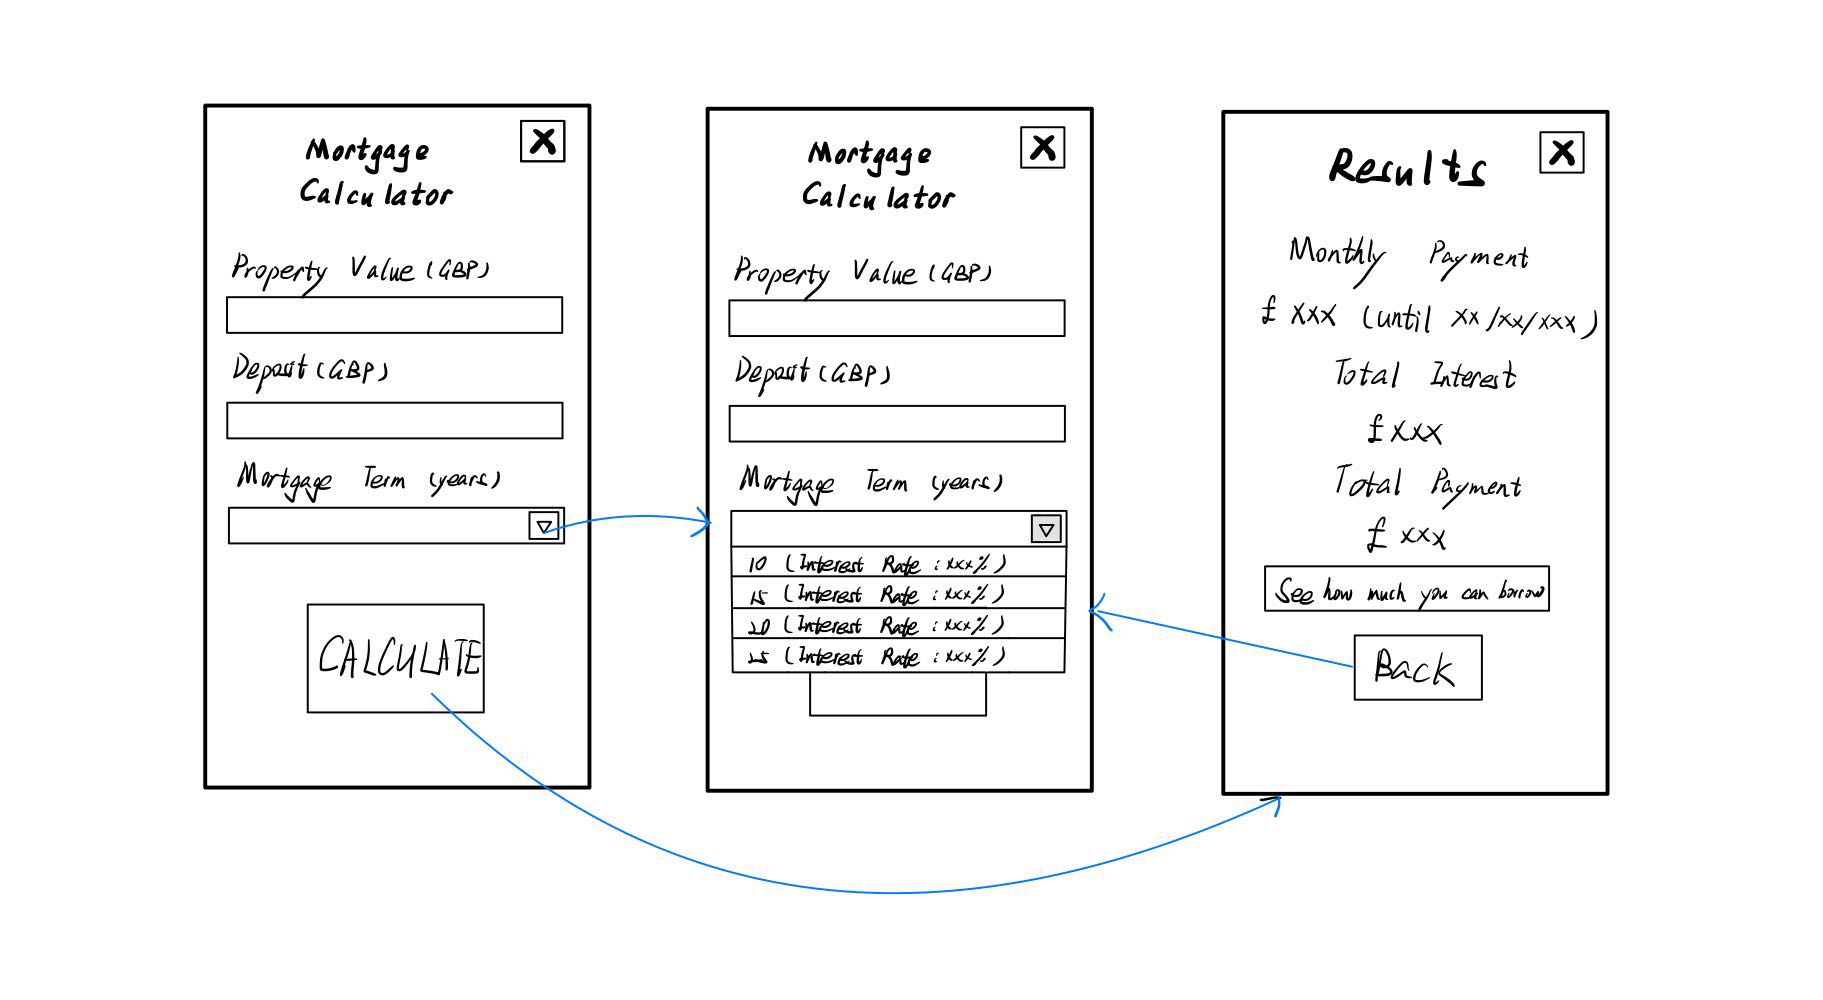 Mortgage
Calculator
X
Property Value (GBP)
Deposit (GBP)
Mortgage Term (years)
CALCULATE
Mortgage
Calculator
X
Property Value (GBP)
Deposit (GBP)
Mortgage Term (years)
10 (Interest Rate : xxx%)
15 (Interest Rate : xxx%)
20 (Interest Rate : xxx%)
25 (Interest Rate : xxx%)
Results
X
Monthly Payment
£ XXX (until xx/xx/xxx)
Total Interest
£ XXX
Total Payment
£ XXX
See how much you can borrow
Back